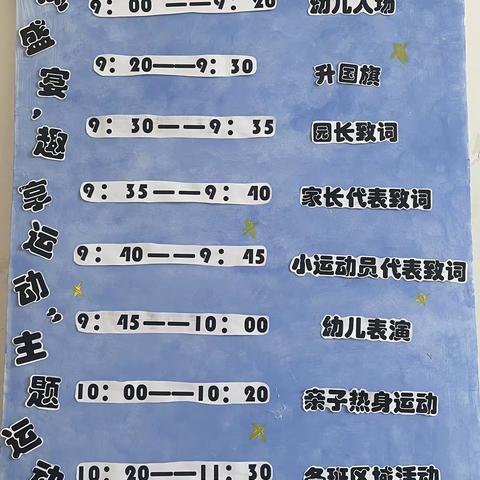 9：00——9：20 幼儿入场
9：20——9：30 升国旗
9：30——9：35 园长致词
9：35——9：40 家长代表致词
9：40——9：45 小运动员代表致词
9：45——10：00 幼儿表演
10：00——10：20 亲子热身运动
10：20——11：30 各班区域活动
盛宴，趣享运动”主题运动